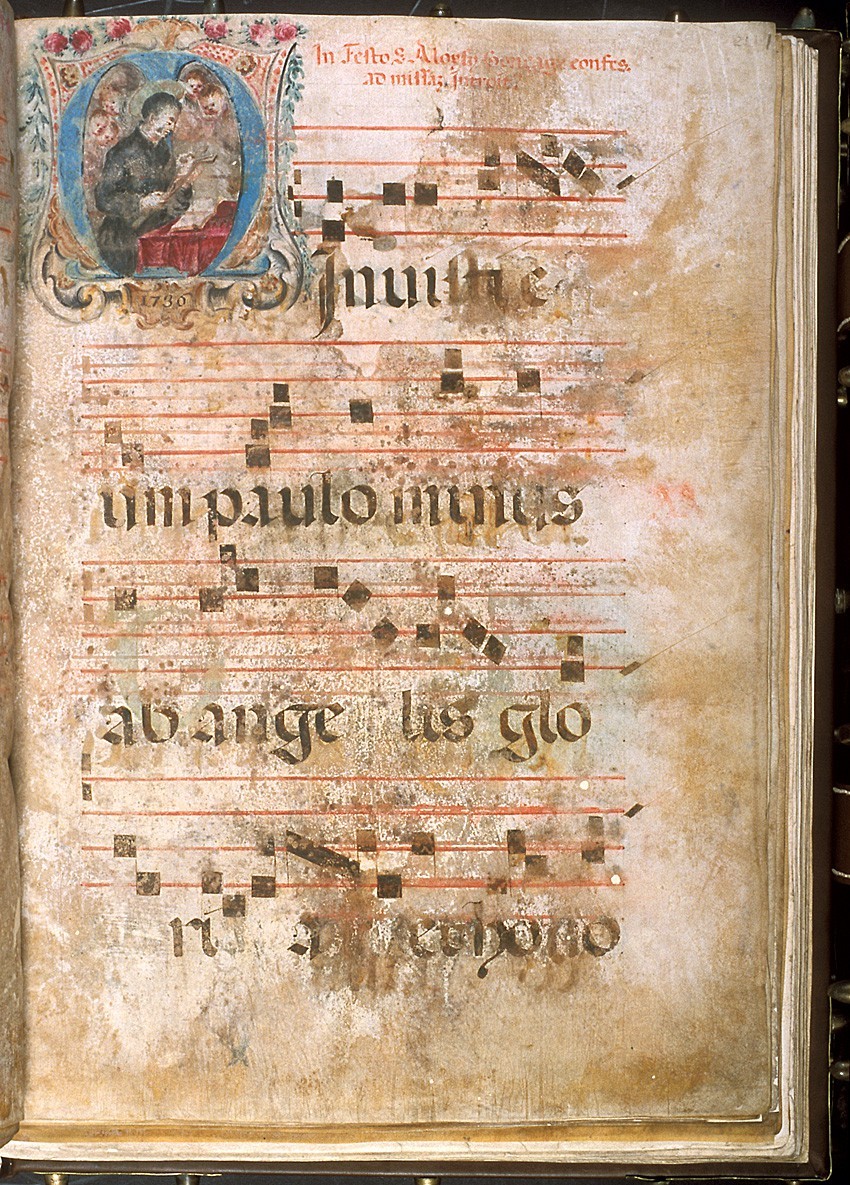 In Festo S. Aloysij confes.
ad missaz. Introit.
M
Inuisti e
um paulo minus
ab ange lis glo
ri a et hono